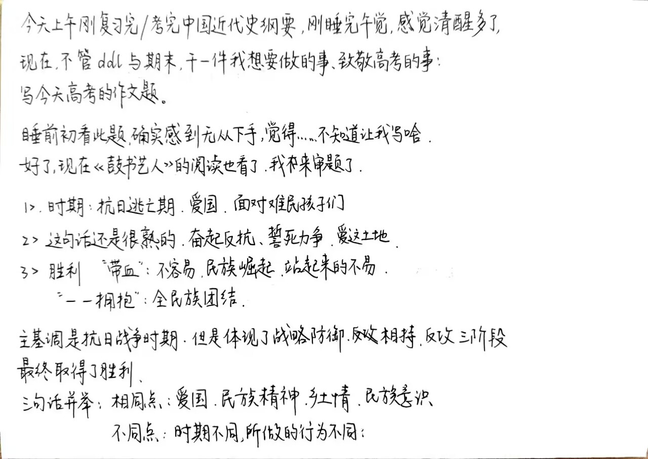 今天上午刚复习完/考完中国近代史纲要，刚睡完午觉，感觉清醒多了，
现在，不管ddl与期末，干一件我想要做的事、致敬高考的事：
写今天高考的作文题。
睡前初看此题，确实感到无从下手，觉得……不知道让我写啥．
好了，现在《鼓书艺人》的阅读也看了．我来审题了．
1>．时期：抗日逃亡期．爱国．面对难民孩子们
2> 这句话还是很熟的．奋起反抗、誓死力争．爱这土地．
3> 胜利 "带血"：不容易．民族崛起．站起来的不易．
"一一拥抱"：全民族团结．
主基调是抗日战争时期．但是体现了战略防御．相持．反攻三阶段
最终取得了胜利．
三句话并举：相同点：爱国．民族精神．乡土情．民族意识．
不同点：时期不同，所做的行为不同：